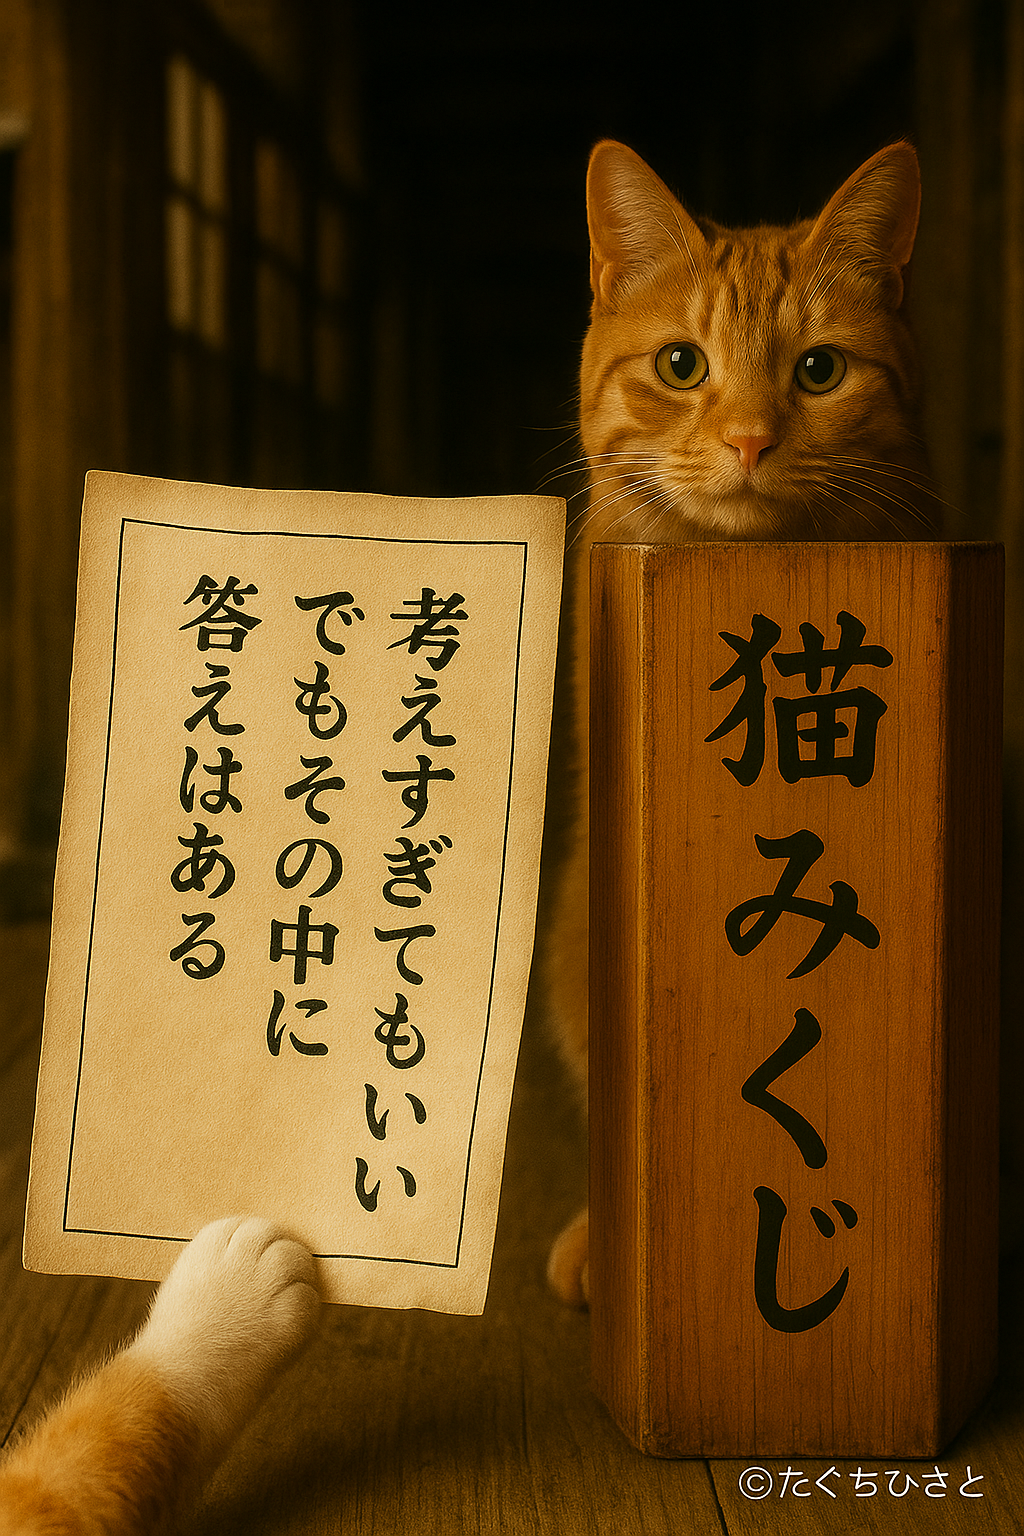 考えすぎてもいい
でもその中に
答えはある
猫みくじ
©たぐちひさと